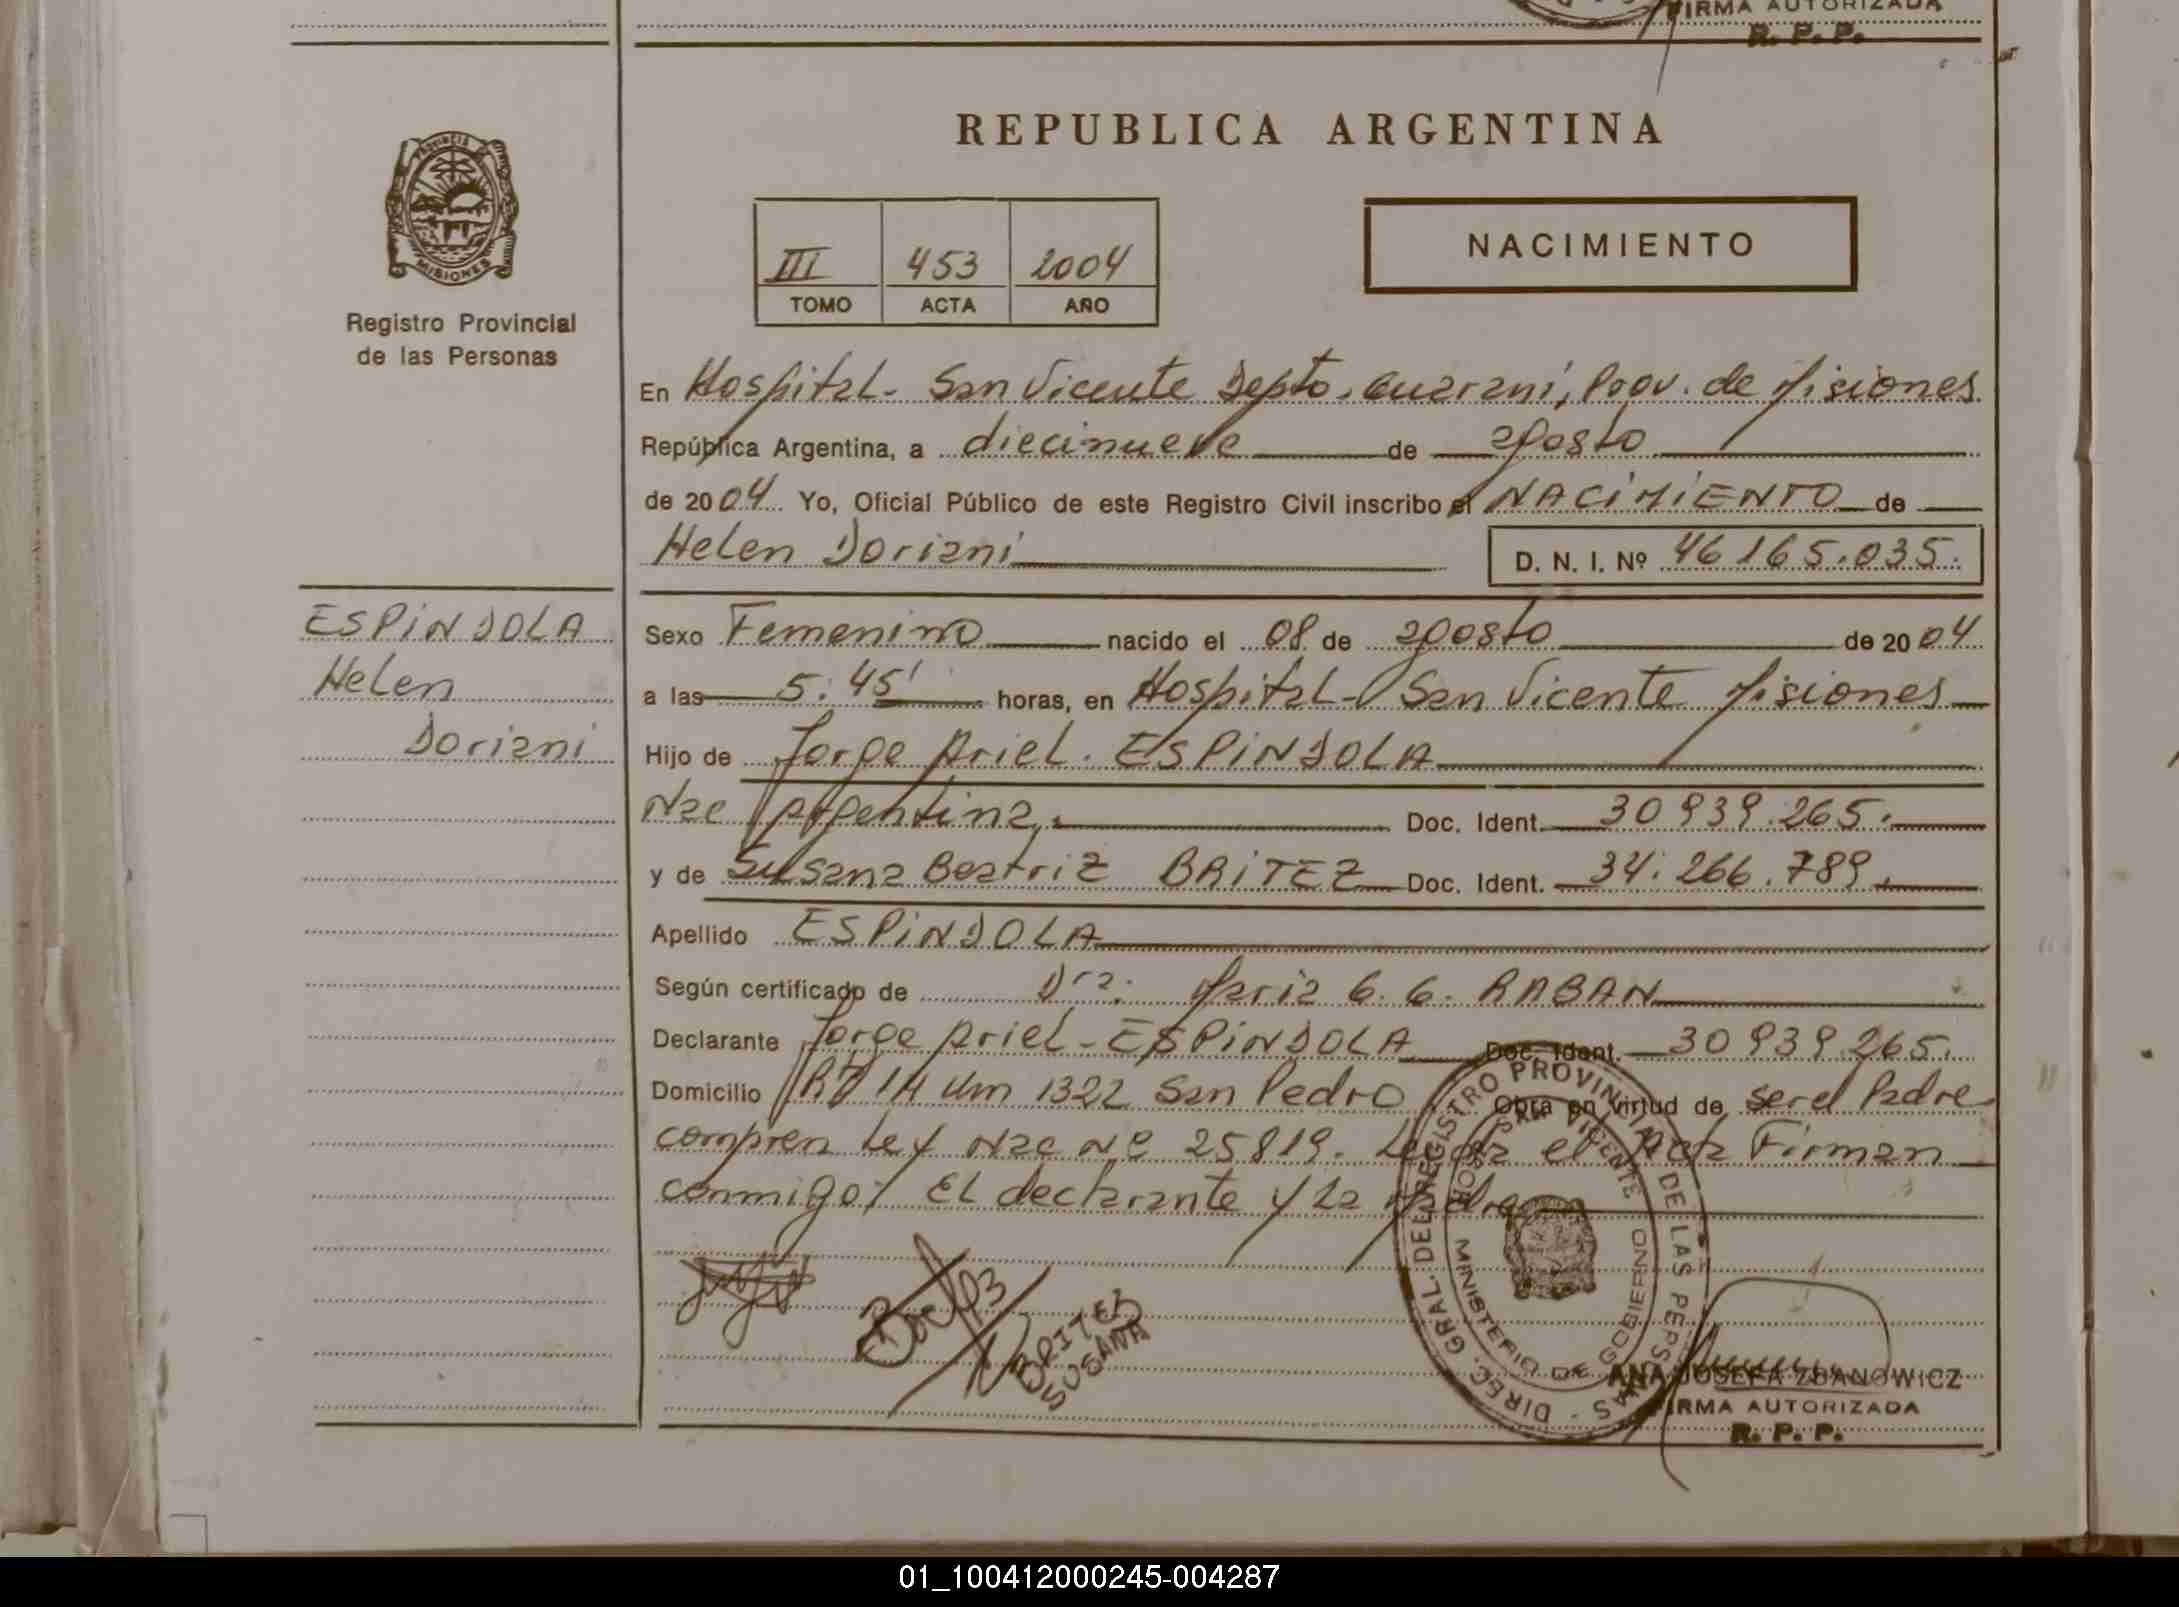 FIRMA AUTORIZADA
R. P. P.
PROVINCIA DE
MISIONES
Registro Provincial
de las Personas
REPUBLICA ARGENTINA
III 453 2004
TOMO ACTA AÑO
NACIMIENTO
En Hospital - San Vicente Depto. Guarani, Prov. de Misiones
República Argentina, a diecinueve de agosto
de 2004 Yo, Oficial Público de este Registro Civil inscribo el NACIMIENTO de
Helen Doriani D. N. I. Nº 46165.035.
ESPINDOLA
Helen
Doriani
Sexo Femenino nacido el 08 de agosto de 2004
a las 5:45' horas, en Hospital - San Vicente Misiones
Hijo de Jorge Ariel. ESPINDOLA
Nac Argentina. Doc. Ident. 30939.265.
y de Susana Beatriz BRITEZ Doc. Ident. 34.266.789.
Apellido ESPINDOLA
Según certificado de Dra. Maria G. G. RABAN
Declarante Jorge Ariel - ESPINDOLA Doc. Ident. 30939.265.
Domicilio 14 Km 1322 San Pedro Obra en virtud de ser el Padre
Ley Nac Nº 25819. el Acta Firman
conmigo: El declarante y La Madre
BRITEZ
SUSANA
DIREC. GRAL. DEL REGISTRO PROVINCIAL DE LAS PERSONAS
HOSP. SAN VICENTE
MINISTERIO DE GOBIERNO
ANA JOSEFA ZDANOWICZ
FIRMA AUTORIZADA
R. P. P.
01_100412000245-004287